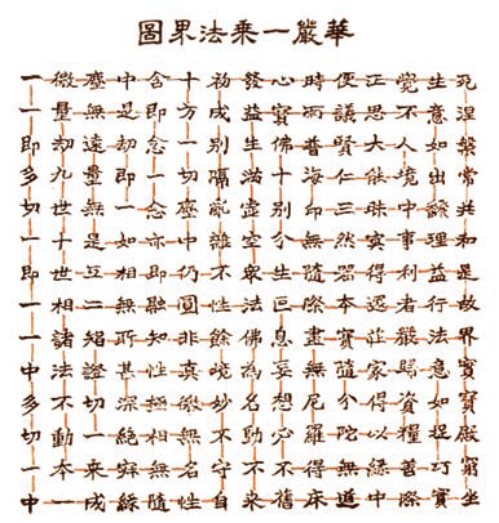 華嚴一乘法界圖
一微塵中含十初發心時便正覺生死
一量無是即方成益寶雨議思不意涅
即劫遠劫念一別生佛普賢大人如槃
多九量即一切隔滿十海仁能境出常
切世無一念塵亂虛別印三昧中繁共
一十是如亦中雜空分無然冥事理和
即世互相即仍不眾生隨器得利益是
一相二無融圓性法叵際本還者行故
一諸智所知非餘佛息盡寶莊嚴法界
中法證甚性真境為妄無隨家歸意實
多不切深極微妙名想尼分得資如寶
切動一絕相無不動必羅陀以糧捉殿
一本來寂無名守不不得無緣善巧窮
中一成緣隨性自來舊床道中際實坐